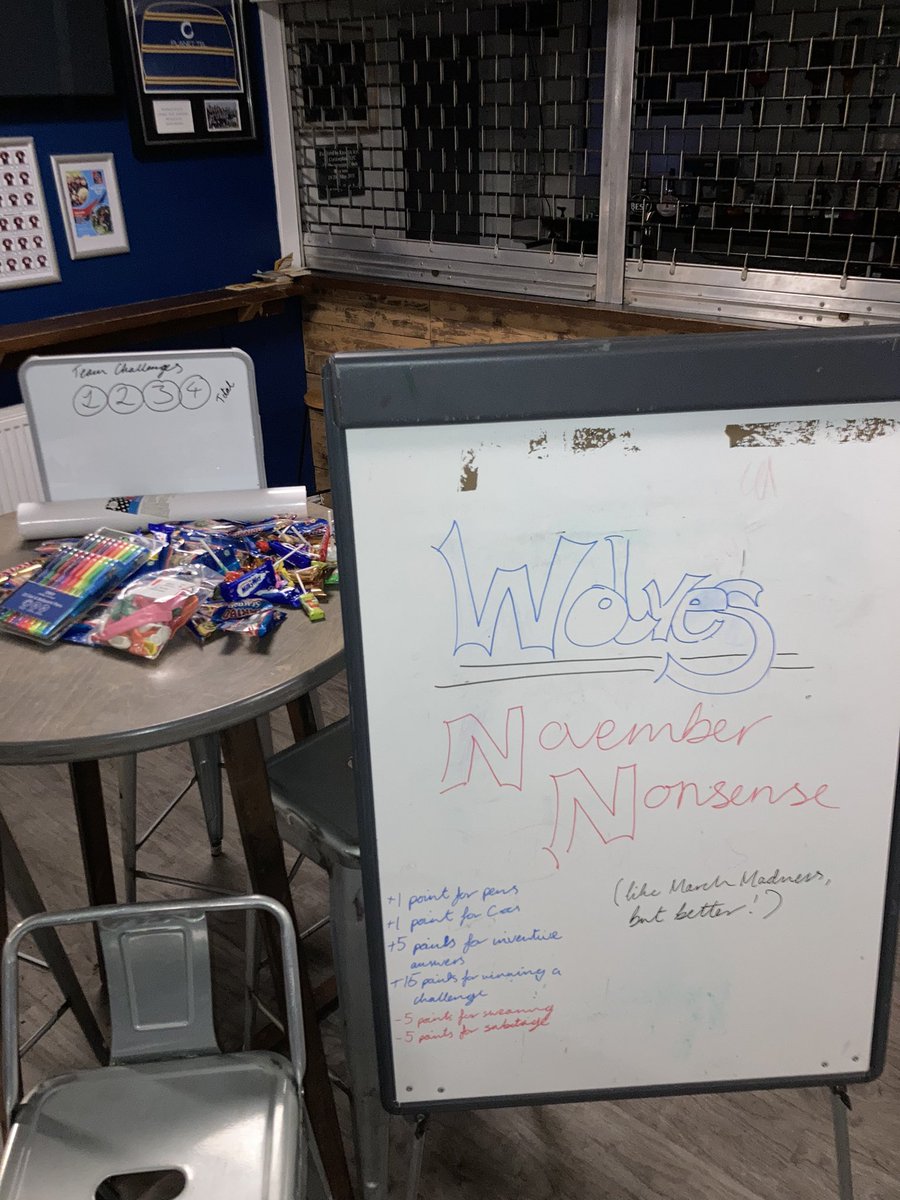 Team Challenges
1 2 3 4 Total
Wolves
November
Nonsense
(like March Madness,
but better!)
+1 point for pens
+1 point for
+5 points for inventive
answers
+15 points for winning a
challenge
-5 points for swearing
-5 points for sabotage